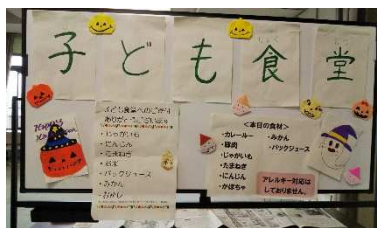 子ども食堂
しょく どう
子ども食堂へのご寄付
ありがとうございます
・じゃがいも
・にんじん
・たまねぎ
・お米
・パックジュース
・みかん
・おかし
＜本日の食材＞
・カレールー
・豚肉
・じゃがいも
・たまねぎ
・にんじん
・かぼちゃ
・みかん
・パックジュース
アレルギー対応は
しておりません。